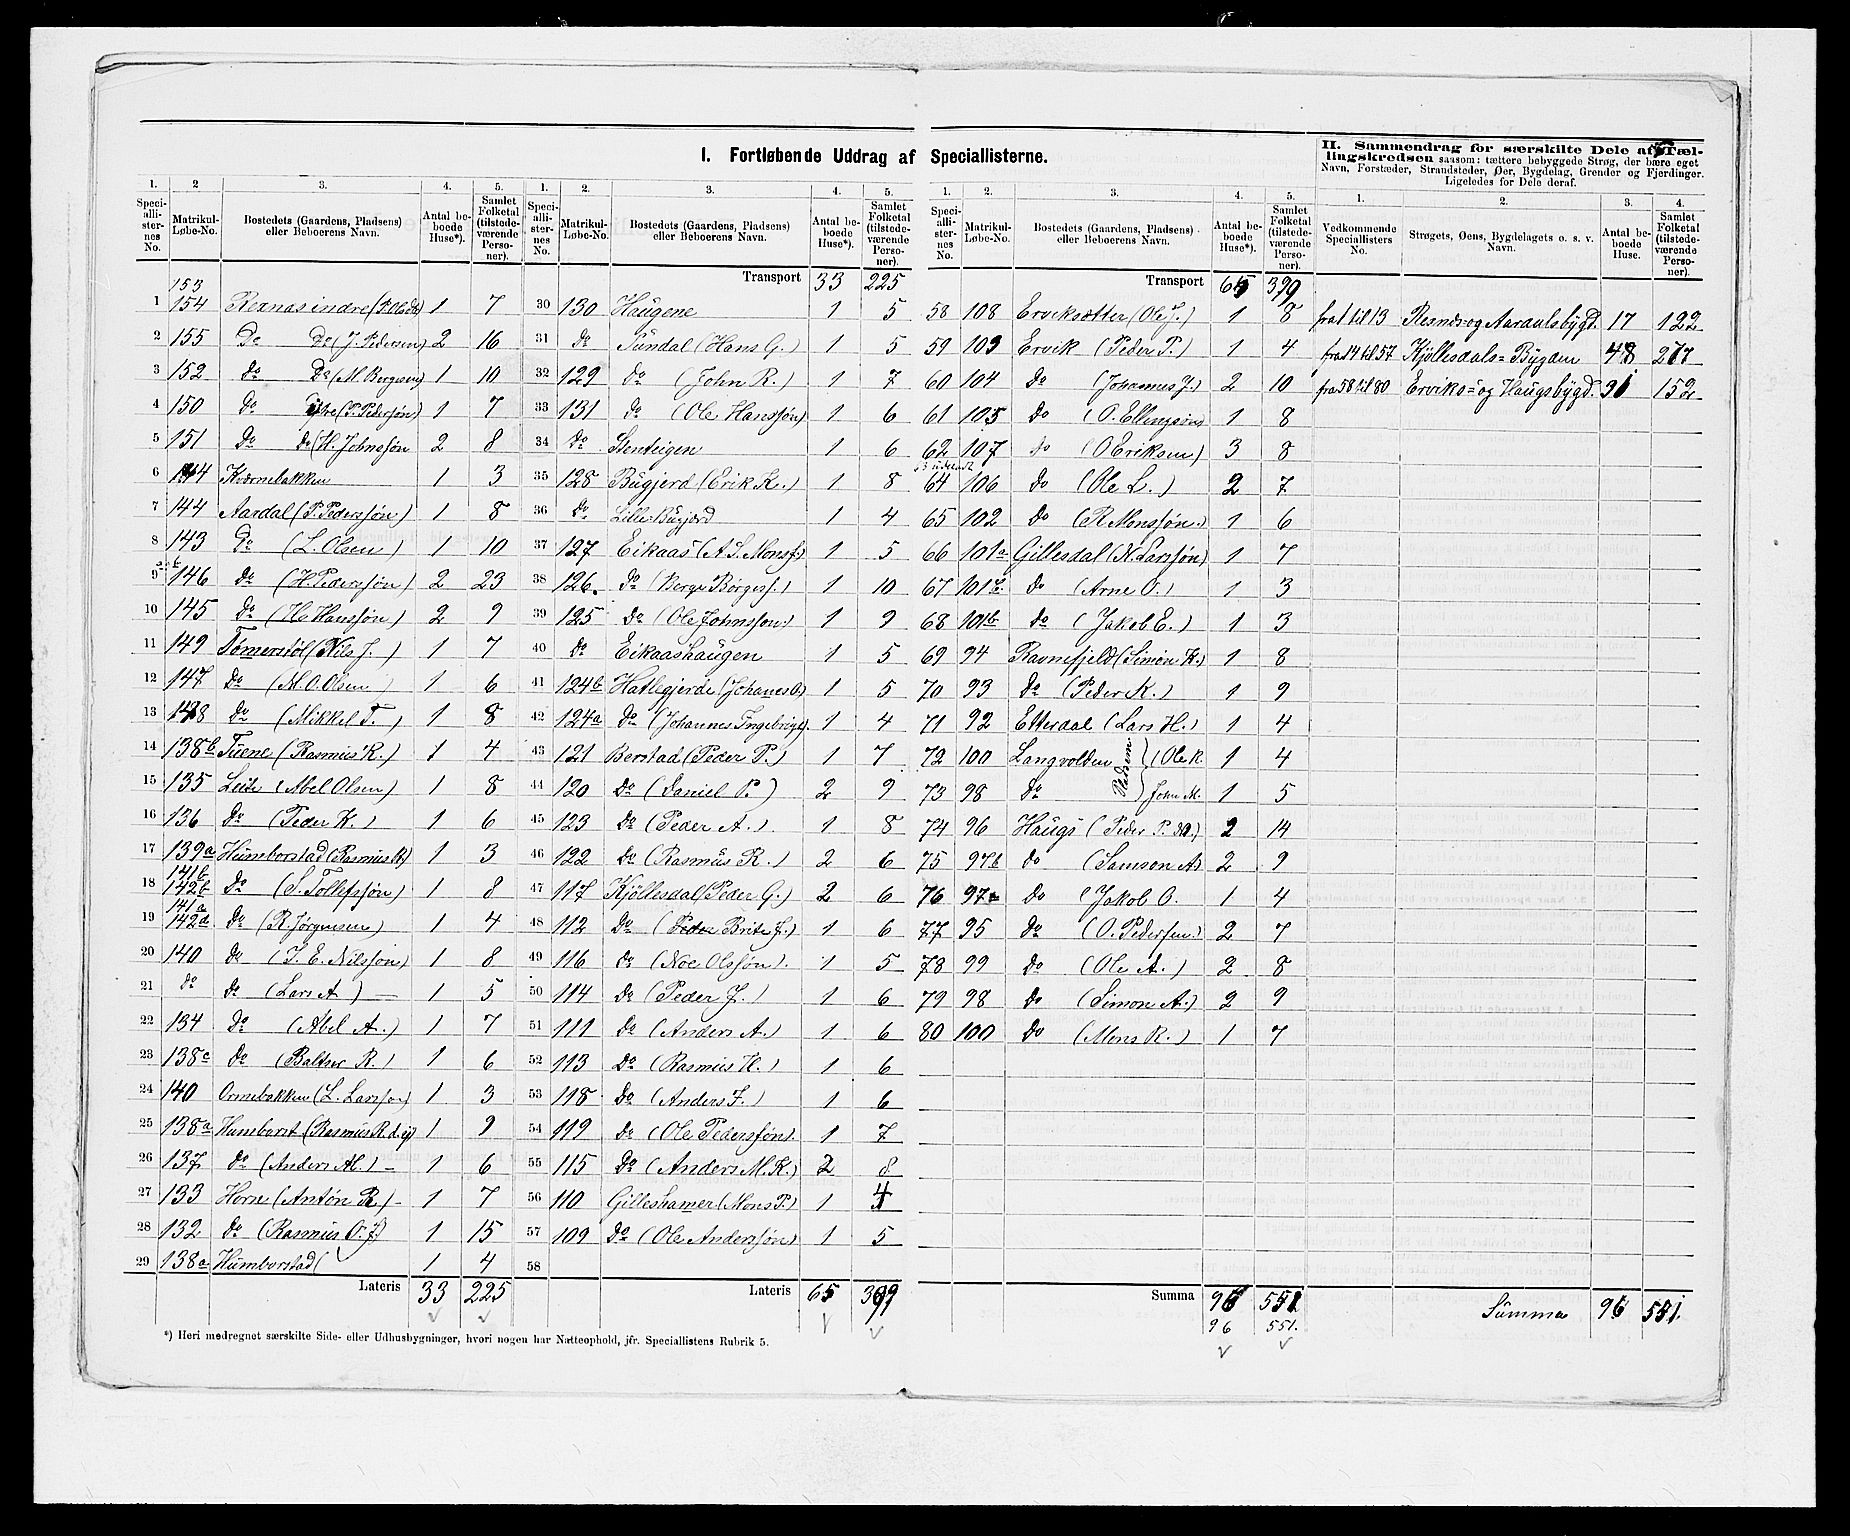 I. Fortløbende Uddrag af Speciallisterne.
II. Sammendrag for særskilte Dele af Tæl-
lingskredsen saasom: tættere bebyggede Strøg, der bære eget
Navn, Forstæder, Strandsteder, Øer, Bygdelag, Grender og Fjerdinger.
Ligeledes for Dele deraf.
1. 2 3. 4. 5.
Speciallisternes No. Matrikul-Løbe-No. Bostedets (Gaardens, Pladsens) eller Beboerens Navn. Antal beboede Huse*). Samlet Folketal (tilstedeværende Personer).
153
1 154 Rexnas indre 1 7
2 155 Do Do (J. Pedersen) 2 16
3 152 do Do (M. Bergesen) 1 10
4 150 do (P. Pedersøn) 1 7
5 151 do do (H. Johnssøn 2 8
6 144 Kværnebakken 1 3
7 144 Aardal (P. Pedersøn) 1 8
8 143 Do (L. Olsen) 1 10
9 146 do (H. Pederssøn) 2 23
10 145 do (H. Hanssøn) 2 9
11 149 Tomerstøl (Nils J.) 1 7
12 147 Do (M. O. Olsen) 1 6
13 148 do (Mikkel T.) 1 8
14 138b Tuene (Rasmus R.) 1 4
15 135 Leite (Abel Olsen) 1 8
16 136 do (Peder K.) 1 6
17 139a Humborstad (Rasmus R) 1 3
141b
18 142b Do (S. Tollefssøn) 1 8
141a
19 142d Do (R. Jørgensen) 1 4
20 140 do (J. E. Nilssøn) 1 8
21 do do (Lars A) 1 5
22 134 Do (Abel A.) 1 7
23 138c Do (Baltser R.) 1 6
24 140 Ormebakken (L. Larssøn) 1 3
25 138a Humborst (Rasmus R. d. y) 1 9
26 137 do (Anders M.) 1 6
27 133 Horne (Antøn R) 1 7
28 132 do (Rasmus O. J) 1 15
29 138a Humborstad ( 1 4
Lateris 33 225
1. 2. 3. 4. 5.
Speciallisternes No. Matrikul-Løbe-No. Bostedets (Gaardens, Pladsens) eller Beboerens Navn. Antal beboede Huse*). Samlet Folketal (tilstedeværende Personer).
Transport 33 225
30 130 Haugene 1 5
31 do Sundal (Hans G.) 1 5
32 129 do (John R.) 1 7
33 131 do (Ole Hanssøn) 1 6
34 do Stenteigen 1 6
35 128 Bugjerd (Erik K.) 1 8
36 do Lille-Bugjerd 1 4
37 127 Eikaas (A S. Monsf.) 1 5
38 126. do (Berge Børgess.) 1 10
39 125 do (Ole Johnssøn) 1 9
40 do Eikaashaugen 1 5
41 124b Hatlegjerde (Johanes O.) 1 5
42 124a do (Johannes Ingebrigt.) 1 4
43 121 Berstad (Peder P.) 1 7
44 120 Do (Daniel P.) 2 9
45 123 Do (Peder A.) 1 8
46 122 Do (Rasmus R.) 2 6
47 117 Kjöllesdal (Peder G.) 2 6
48 112 Do (Brite J.) 1 6
49 116 do (Noe Olssøn). 1 5
50 114 Do (Peder J.) 1 6
51 111 Do (Anders A.) 1 6
52 113 Do (Rasmus H.) 1 6
53 118 Do (Anders J.) 1 6
54 119 do (Ole Pederssøn). 1 7
55 115 Do (Anders M. K.) 2 8
56 110 Gilleshamer (Mons P.) 1 4
57 109 Do (Ole Anderssøn) 1 5
58
Lateris 65 399
1. 2. 3. 4. 5.
Speciallisternes No. Matrikul-Løbe-No. Bostedets (Gaardens, Pladsens) eller Beboerens Navn. Antal beboede Huse*). Samlet Folketal (tilstedeværende Personer).
Transport 65 399
58 108 Erviksætter (Ole J.) 1 8
59 103 Ervik (Peder P.) 1 4
60 104 do (Johannes J.) 2 10
61 105 do (O. Ellingsøn) 1 8
62 107 do (O Eriksen) 3 8
64 106 do (Ole L.) 2 7
65 102 do (R Monssøn.) 1 6
66 101a Gillesdal (N. Larssøn) 1 7
67 101c do (Arne O.) 1 3
68 101b do (Jakob E.) 1 3
69 94 Ravnefjeld (Simon K.) 1 8
70 93 do (Peder K.) 1 9
71 92 Etterdal (Lars H.) 1 4
72 100 Langvolden (Ole R. 1 4
Pladsen.
73 98 do John M. 1 5
74 96 Haugs (Peder P.) 2 14
75 97b do (Samson A) 2 9
76 97a do (Jakob O. 1 4
77 95 do (O. Pederssen.) 2 7
78 99 do (Ole A.) 2 8
79 98 do (Simon A.) 2 9
80 100 do (Mons R.) 1 7
Summa 96 551
96 551.
1. 2. 3. 4.
Vedkommende Speciallisters No. Strøgets, Øens, Bygdelagets o. s. v. Navn. Antal beboede Huse. Samlet Folketal (tilstedeværende Personer).
fra 1 til 13 Resnæs og Aardalsbygd. 17 122
fra 14 til 57 Kjöllesdals= Bygden 48 277
fra 58 til 80 Erviks= og Haugsbygd. 31 152
Summa 96 551.
*) Heri medregnet særskilte Side- eller Udhusbygninger, hvori nogen har Natteophold, jfr. Speciallistens Rubrik 5.